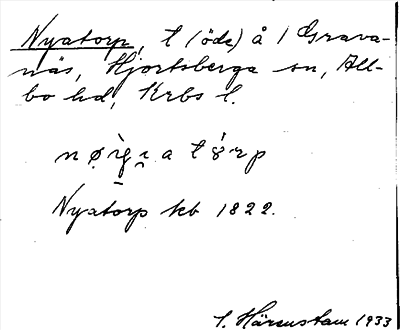 Nyatorp, t (öde) å 1 Grava-
näs, Hjortsberga sn, All-
bo hd, Krbs l.
Nyatorp kb 1822.
S. Härenstam 1933